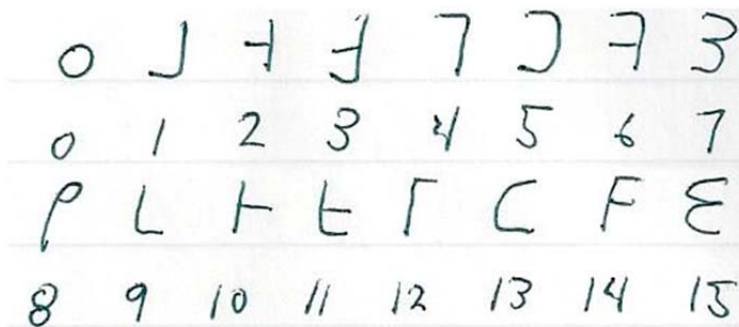 o ⅃ ⊣ ∃ ⅂ Ɔ ꟻ 3
0 1 2 3 4 5 6 7
ρ L ⊢ Ł Γ C F Ɛ
8 9 10 11 12 13 14 15